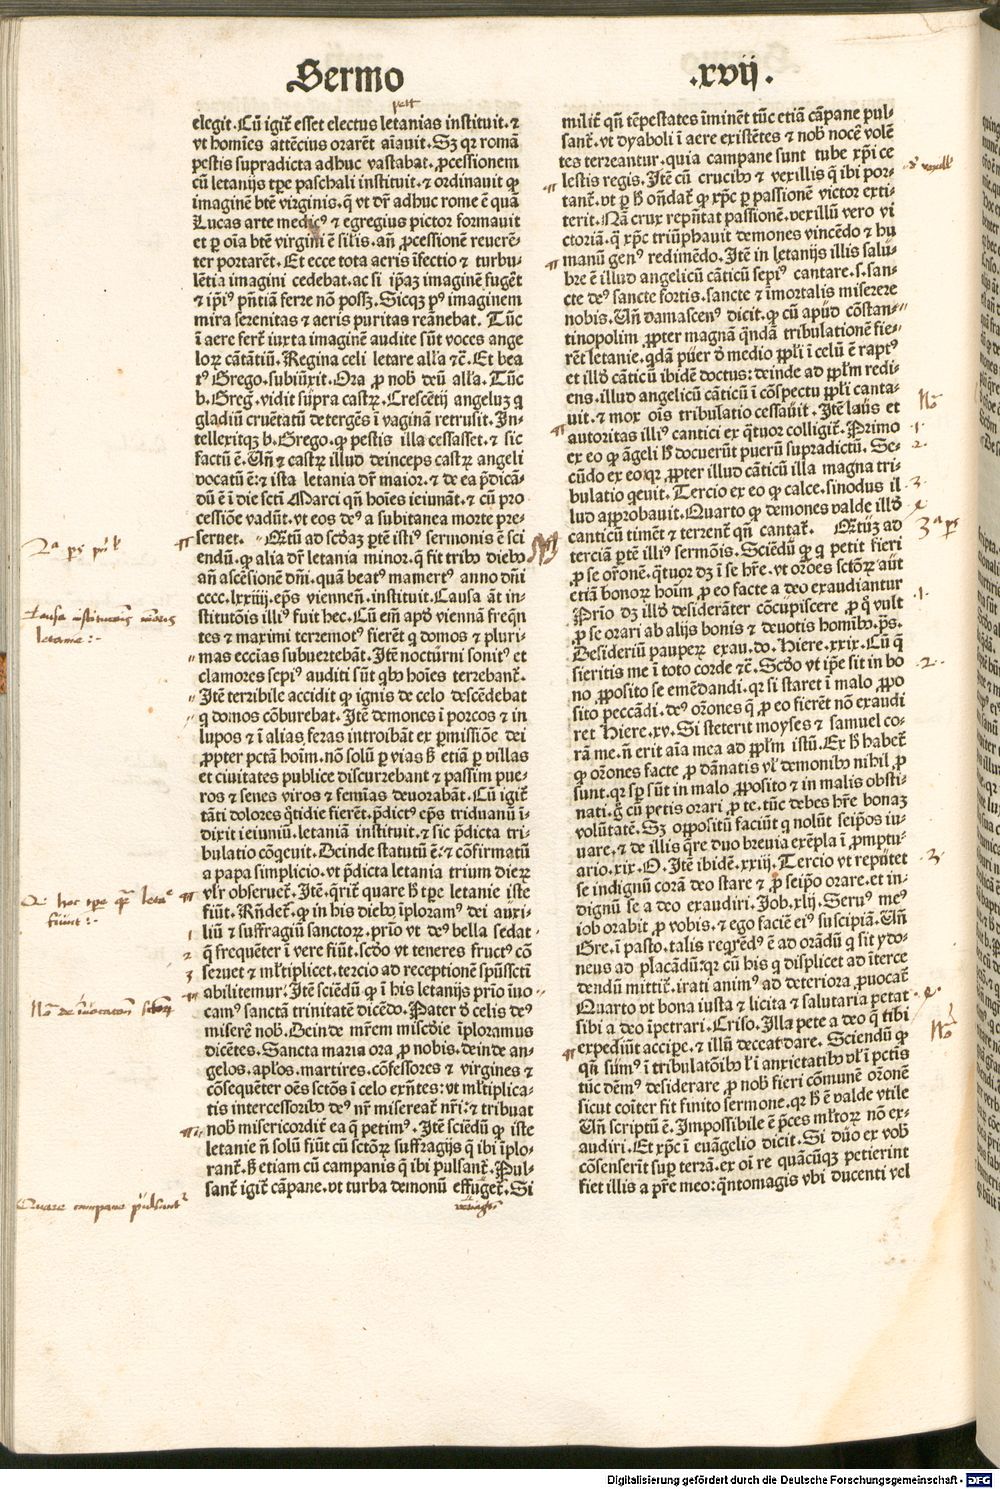 Sermo .xvij.
elegit. Cũ igit̃ esset electus letanias instituit. ⁊
vt homines attẽcius orarẽt aĩauit. Sꝫ qr romã
pestis supradicta adhuc vastabat. ꝓcessionem
cũ letanijs tꝑe paschali instituit. ⁊ ordinauit ꝙ
imaginẽ btẽ virginis. q̃ vt dr̃ adhuc rome ẽ quã
Lucas arte medicꝰ ⁊ egregius pictor formauit
et ꝑ oĩa btẽ virgini ẽ silis. añ ꝓcessionẽ reuerẽ-
ter portarẽt. Et ecce tota aeris ĩfectio ⁊ turbu-
lẽtia imagini cedebat. ac si ip̃aꝫ imaginẽ fugẽt
⁊ ip̃iꝰ p̃ntiã ferre nõ possꝫ. Sicqꝫ pꝰ imaginem
mira serenitas ⁊ aeris puritas reãnebat. Tũc
ĩ aere fert̃ iuxta imaginẽ audite sũt voces ange
loꝝ cãtãtiũ. Regina celi letare alľa ⁊c̃. Et bea
tꝰ Grego. subiũxit. Ora ꝓ nob̃ deũ alľa. Tũc
b. Greg. vidit sup̃ra castꝝ. Crescẽtij angeluꝫ q
gladiũ cruẽtatũ detergẽs ĩ vaginã retrusit. In-
tellexitqꝫ b. Grego. ꝙ pestis illa cessasset. ⁊ sic
factũ ẽ. Uñ ⁊ castꝝ illud deinceps castꝝ angeli
vocatũ ẽ: ⁊ ista letania dr̃ maior. ⁊ de ea p̃dicã-
dũ ẽ ĩ die scti Marci qñ hoĩes ieiunãt. ⁊ cũ pro
cessiõe vadũt. vt eos deꝰ a subitanea morte pre-
seruet. Q̃tũ ad scd̃aꝫ ꝑtẽ istiꝰ sermonis ẽ sci
endũ. ꝙ alia dr̃ letania minor. q̃ fit tribꝰ diebꝰ
añ ascẽsionẽ dñi. quã beatꝰ mamertꝰ anno dñi
cccc.lxxiiij. ep̃s viennẽn̄. instituit. Causa ãt in-
stitutõis illiꝰ fuit hec. Cũ em̃ apd̃ viennã freq̃n
tes ⁊ maximi terremotꝰ fierẽt q̃ domos ⁊ pluri-
mas eccĩas subuertebãt. Itẽ nocturni sonitꝰ et
clamores sepiꝰ auditi sũt qbꝰ hoĩes terrebant̃.
Itẽ terribile accidit ꝙ ignis de celo descẽdebat
q̃ domos cõburebat. Itẽ demones ĩ porcos ⁊ in
lupos ⁊ ĩ alias feras introibãt ex ꝑmissiõe dei
ꝓpter pctã hoĩm. nõ solũ ꝑ vias sꝫ etiã ꝑ villas
et ciuitates publice discurrebant ⁊ passim pue-
ros ⁊ senes viros ⁊ femĩas deuorabãt. Cũ igit̃
tãti dolores q̃tidie fierẽt. p̃dictꝰ ep̃s triduanũ ĩ-
dixit ieiuniũ. letaniã instituit. ⁊ sic p̃dicta tri-
bulatio cõqeuit. Deinde statutũ ẽ: ⁊ cõfirmatũ
a papa simplicio. vt p̃dicta letania trium dieꝝ
vľr obseruet̃. Itẽ. q̃rit̃ quare h̃ tꝑe letanie iste
fiũt. Rñdet̃. ꝙ in his diebꝰ ĩploramꝰ dei auxi-
liũ ⁊ suffragiũ sanctoꝝ. p̃rio vt deꝰ bella sedat
q̃ frequẽter ĩ vere fiũt. scd̃o vt teneres fructꝰ cõ
seruet ⁊ mľtiplicet. tercio ad receptionẽ spũssctĩ
abilitemur. Itẽ sciẽdũ ꝙ ĩ his letanijs p̃rio ĩuo-
camꝰ sanctã trinitatẽ dicẽdo. Pater d̃ celis deꝰ
miserẽ nob̃. Deinde mr̃em misc̃die ĩploramus
dicẽtes. Sancta maria ora ꝓ nobis. deinde an-
gelos. apľos. martires. cõfessores ⁊ virgines ⁊
cõsequẽter oẽs sctõs ĩ celo exñtes: vt mľtiplica-
tis intercessoribꝰ deꝰ nr̃ misereat̃ nr̃i: ⁊ tribuat
nob̃ misericordit̃ ea q̃ petimꝰ. Itẽ sciẽdũ ꝙ iste
letanie ñ solũ fiũt cũ sctõꝝ suffragijs q̃ ibi ĩplo-
rant̃. sꝫ etiam cũ campanis q̃ ibi pulsant̃. Pul-
sant̃ igit̃ cãpane. vt turba demonũ effuget̃. Si
milit̃ qñ tẽpestates ĩminẽt tũc etiã cãpane pul-
sant̃. vt dyaboli ĩ aere existẽtes ⁊ nob̃ nocẽ volẽ
tes terreantur. quia campane sunt tube xp̃i ce
lestis regis. Itẽ cũ crucibꝰ ⁊ vexillis q̃ ibi por-
tant̃. vt ꝑ h̃ oñdat̃ ꝙ xp̃c ꝑ passionẽ victor exti-
terit. Nã crux rep̃ntat passionẽ. vexillũ vero vi
ctoriã. q̃ xp̃c triũphauit demones vincẽdo ⁊ hu
manũ genꝰ redimẽdo. Itẽ in letanijs illis salu-
bre ẽ illud angelicũ cãticũ sepiꝰ cantare. s. san-
cte deꝰ sancte fortis. sancte ⁊ ĩmortalis miserere
nobis. Uñ damascenꝰ dicit. ꝙ cũ apud cõstan-
tinopolim ꝓpter magnã q̃ndã tribulationẽ fie-
rẽt letanie. qdã puer d̃ medio ꝓpľi ĩ celũ ẽ raptꝰ
et illd̃ cãticũ ibidẽ doctus: deinde ad ꝓpľm redi-
ens. illud angelicũ cãticũ ĩ cõspectu ꝓpľi canta-
uit. ⁊ mox oĩs tribulatio cessauit. Itẽ laus et
autoritas illiꝰ cantici ex q̃tuor colligit̃. Primo
ex eo ꝙ ãgeli h̃ docuerũt puerũ supradictũ. Se-
cũdo ex eo qr ꝓpter illud cãticũ illa magna tri-
bulatio qeuit. Tercio ex eo ꝙ calce. sinodus il-
lud approbauit. Quarto ꝙ demones valde illd̃
canticũ timẽt ⁊ terrent̃ qñ cantat̃. Q̃tuꝫ ad
terciã ꝑtẽ illiꝰ sermõis. Sciẽdũ ꝙ q petit fieri
ꝓ se or̃onẽ. q̃tuor dꝫ ĩ se hr̃e. vt or̃oes sctõꝝ aut
etiã bonoꝝ hoĩm ꝓ eo facte a deo exaudiantur
P̃rio dꝫ illd̃ desiderãter cõcupiscere ꝓ q̃ vult
ꝓ se orari ab alijs bonis ⁊ deuotis homĩbꝰ. p̃s.
Desideriũ pauperꝝ exau. do. Hiere. xxix. Cũ q̃
sieritis me ĩ toto corde ⁊c̃. Scd̃o vt ip̃e sit in bo
no ꝓposito se emẽdandi. qr si staret ĩ malo ꝓpo
sito peccãdi. deꝰ or̃ones q̃ ꝓ eo fierẽt nõ exaudi
ret Hiere. xv. Si steterit moyses ⁊ samuel co-
rã me. ñ erit aĩa mea ad ꝓpľm istũ. Ex h̃ habet̃
ꝙ or̃ones facte ꝓ dãnatis vľ demonibꝰ nihil ꝓ
sunt. qr sp̃ sũt in malo ꝓposito ⁊ in malis obsti-
nati. g̃ cũ petis orari ꝓ te. tũc debes hr̃e bonaꝫ
volũtatẽ. Sꝫ oppositũ faciũt q nolũt seip̃os iu-
uare. ⁊ de illis q̃re duo breuia exẽpla ĩ ꝓmptu-
ario. xix. O. Itẽ ibidẽ. xxiij. Tercio vt reputet
se indignũ corã deo stare ⁊ ꝓ seip̃o orare. et in-
dignũ se a deo exaudiri. Job. xlij. Seruꝰ meꝰ
iob orabit ꝓ vobis. ⁊ ego faciẽ eiꝰ suscipiã. Uñ
Gre. ĩ pasto. talis reqrẽdꝰ ẽ ad orãdũ q sit ydo-
neus ad placãdũ: qr cũ his q displicet ad ĩterce
dendũ mittit̃. irati animꝰ ad deteriora ꝓuocat̃
Quarto vt bona iusta ⁊ licita ⁊ salutaria petat
sibi a deo ĩpetrari. Criso. Illa pete a deo q̃ tibi
expediũt accipe. ⁊ illũ deceat dare. Sciendũ ꝙ
qñ sumꝰ ĩ tribulatõibꝰ ľ ĩ anxietatibꝰ vľ ĩ pctis
tũc dẽmꝰ desiderare ꝓ nob̃ fieri cõmunẽ or̃onẽ
sicut coĩter fit finito sermone. qr h̃ ẽ valde vtile
Uñ scriptũ ẽ. Impossibile ẽ p̃ces mľtoꝝ nõ ex-
audiri. Et xp̃c ĩ euãgelio dicit. Si duo ex vob̃
cõsenserĩt suꝑ terrã. ex oĩ re quãcũqꝫ petierint
fiet illis a pr̃e meo: q̃ntomagis vbi ducenti vel
Causa institucionis minoris
letanie :-
Quare campane pulsantur
Digitalisierung gefördert durch die Deutsche Forschungsgemeinschaft - DFG